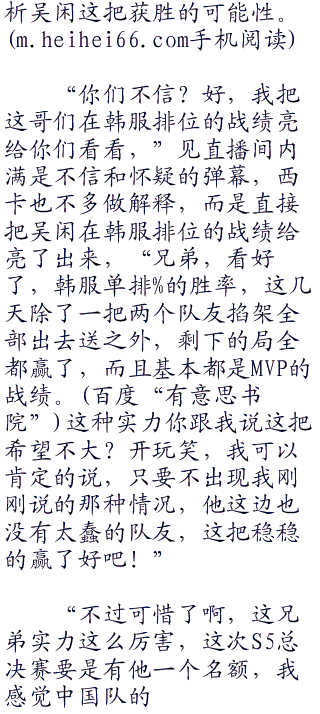 析吴闲这把获胜的可能性。
(m.heihei66.com手机阅读)
“你们不信？好，我把
这哥们在韩服排位的战绩亮
给你们看看，”见直播间内
满是不信和怀疑的弹幕，西
卡也不多做解释，而是直接
把吴闲在韩服排位的战绩给
亮了出来，“兄弟，看好
了，韩服单排%的胜率，这几
天除了一把两个队友掐架全
部出去送之外，剩下的局全
都赢了，而且基本都是MVP的
战绩。(百度“有意思书
院”)这种实力你跟我说这把
希望不大？开玩笑，我可以
肯定的说，只要不出现我刚
刚说的那种情况，他这边也
没有太蠢的队友，这把稳稳
的赢了好吧！”
“不过可惜了啊，这兄
弟实力这么厉害，这次S5总
决赛要是有他一个名额，我
感觉中国队的